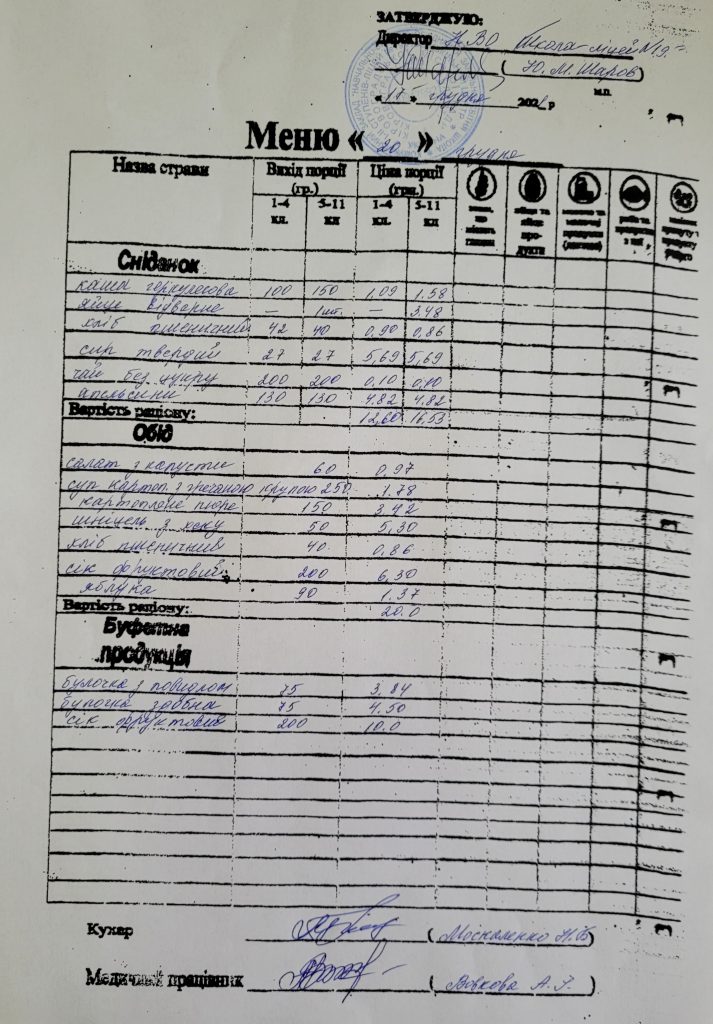 ЗАТВЕРДЖУЮ:
Директор НВО Школа ліцей №19
( Ю. М. Шаров )
м.п.
« 17 » грудня 202 р
Меню « 20 » грудня
Назва страви Вихід порції (гр.) Ціна порції (грн.)
1-4 кл. 5-11 кл 1-4 кл. 5-11 кл
Сніданок
каша геркулесова 100 150 1,09 1,58
яйце відварне — 1шт. — 3,48
хліб пшеничний 42 40 0,90 0,86
сир твердий 27 27 5,69 5,69
чай без цукру 200 200 0,10 0,10
апельсини 130 130 4,82 4,82
Вартість раціону: 12,60 16,53
Обід
салат з капусти 60 0,97
суп картоп. з гречаною крупою 250 1.78
картопляне пюре 150 3,42
шніцель з хеку 50 5,30
хліб пшеничний 40 0,86
сік фруктовий 200 6,30
яблука 90 1.37
Вартість раціону: 20.0
Буфетна
продукція
булочка з повидлом 75 3,84
булочка здобна 75 4,50
сік фруктовий 200 10.0
Кухар ( Москаленко Н.В )
Медичний працівник ( Вовкова А. Г. )